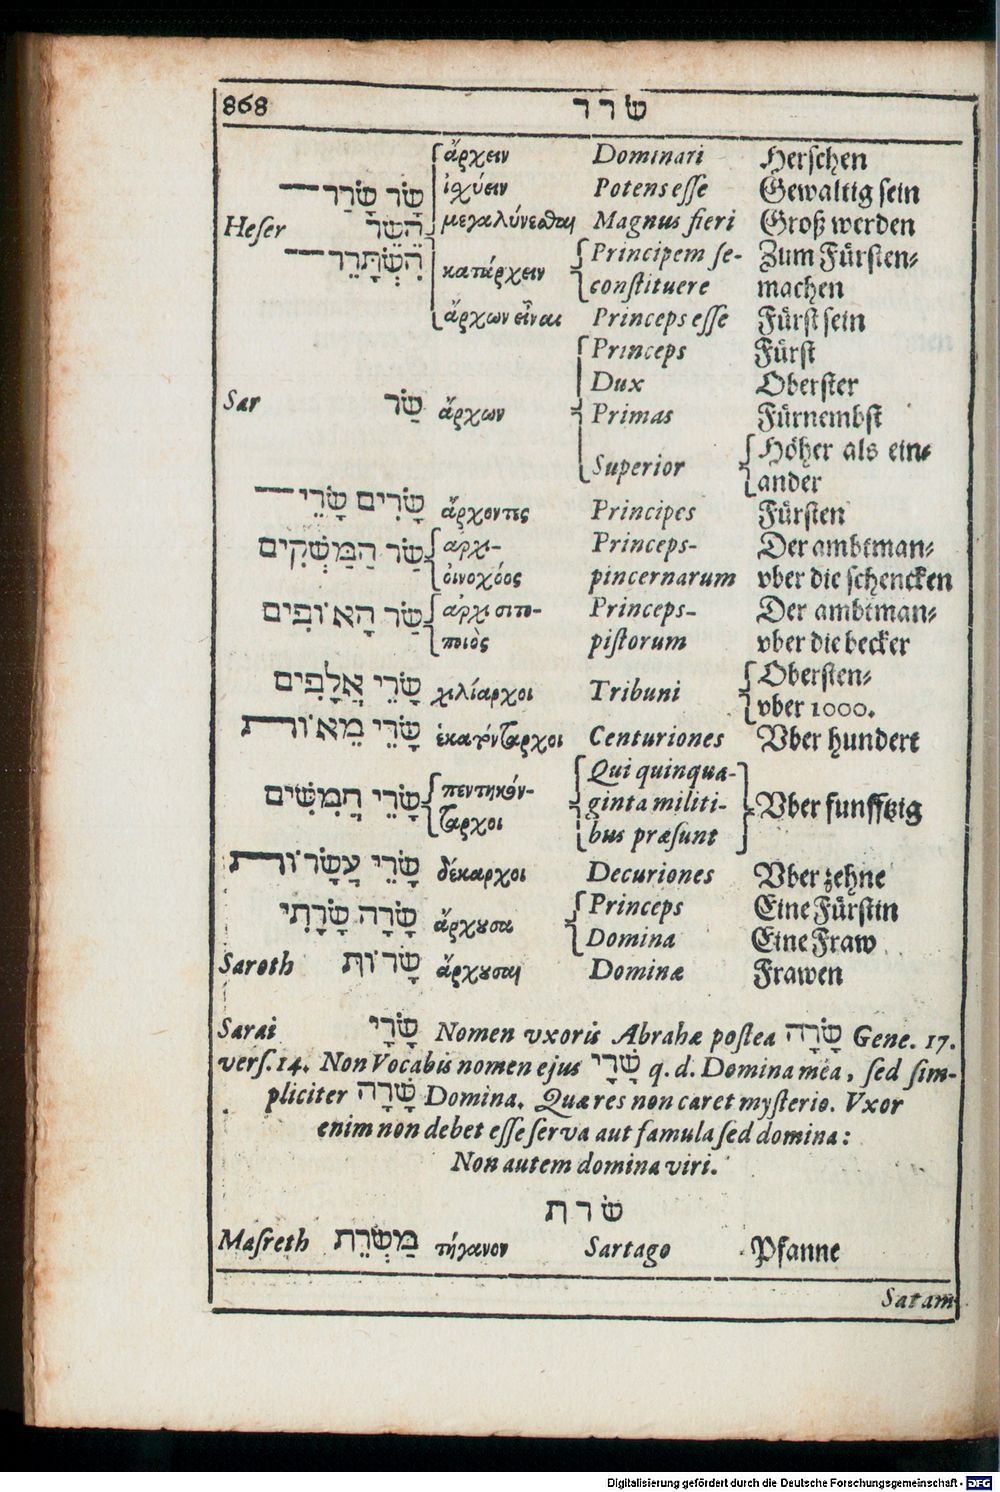 868 שׂרר
שָׂר שָׂרַר ἄρχειν Dominari Herschen
ἰσχύειν Potens esse Gewaltig sein
Heser הֵשֵׂר μεγαλύνεσθαι Magnus fieri Groß werden
הִשְׂתָּרֵר κατάρχειν Principem se- Zum Fürsten-
constituere machen
ἄρχων εἶναι Princeps esse Fürst sein
Princeps Fürst
Dux Oberster
Sar שַׂר ἄρχων Primas Fürnembst
Superior Höher als ein-
ander
שָׂרִים שָׂרֵי ἄρχοντες Principes Fürsten
שַׂר הַמַּשְׁקִים ἀρχι- Princeps- Der ambtman-
οἰνοχόος pincernarum vber die schencken
שַׂר הָאוֹפִים ἀρχισιτο- Princeps- Der ambtman-
ποιὸς pistorum vber die becker
שָׂרֵי אֲלָפִים χιλίαρχοι Tribuni Obersten-
vber 1000.
שָׂרֵי מֵאוֹת ἑκατόνταρχοι Centuriones Vber hundert
שָׂרֵי חֲמִשִּׁים πεντηκόν- Qui quinqua-
ταρχοι ginta militi- Vber funfftzig
bus præsunt
שָׂרֵי עֲשָׂרוֹת δέκαρχοι Decuriones Vber zehne
שָׂרָה שָׂרָתִי ἄρχουσα Princeps Eine Fürstin
Domina Eine Fraw
Saroth שָׂרוֹת ἄρχουσαι Dominæ Frawen
Sarai שָׂרָי Nomen vxoris Abrahæ postea שָׂרָה Gene. 17.
vers. 14. Non Vocabis nomen ejus שָׂרָי q. d. Domina mea, sed sim-
pliciter שָׂרָה Domina. Quæ res non caret mysterio. Vxor
enim non debet esse serva aut famula sed domina:
Non autem domina viri.
שׂרת
Masreth מַשְׂרֵת τήγανον Sartago Pfanne
Satam
Digitalisierung gefördert durch die Deutsche Forschungsgemeinschaft - DFG